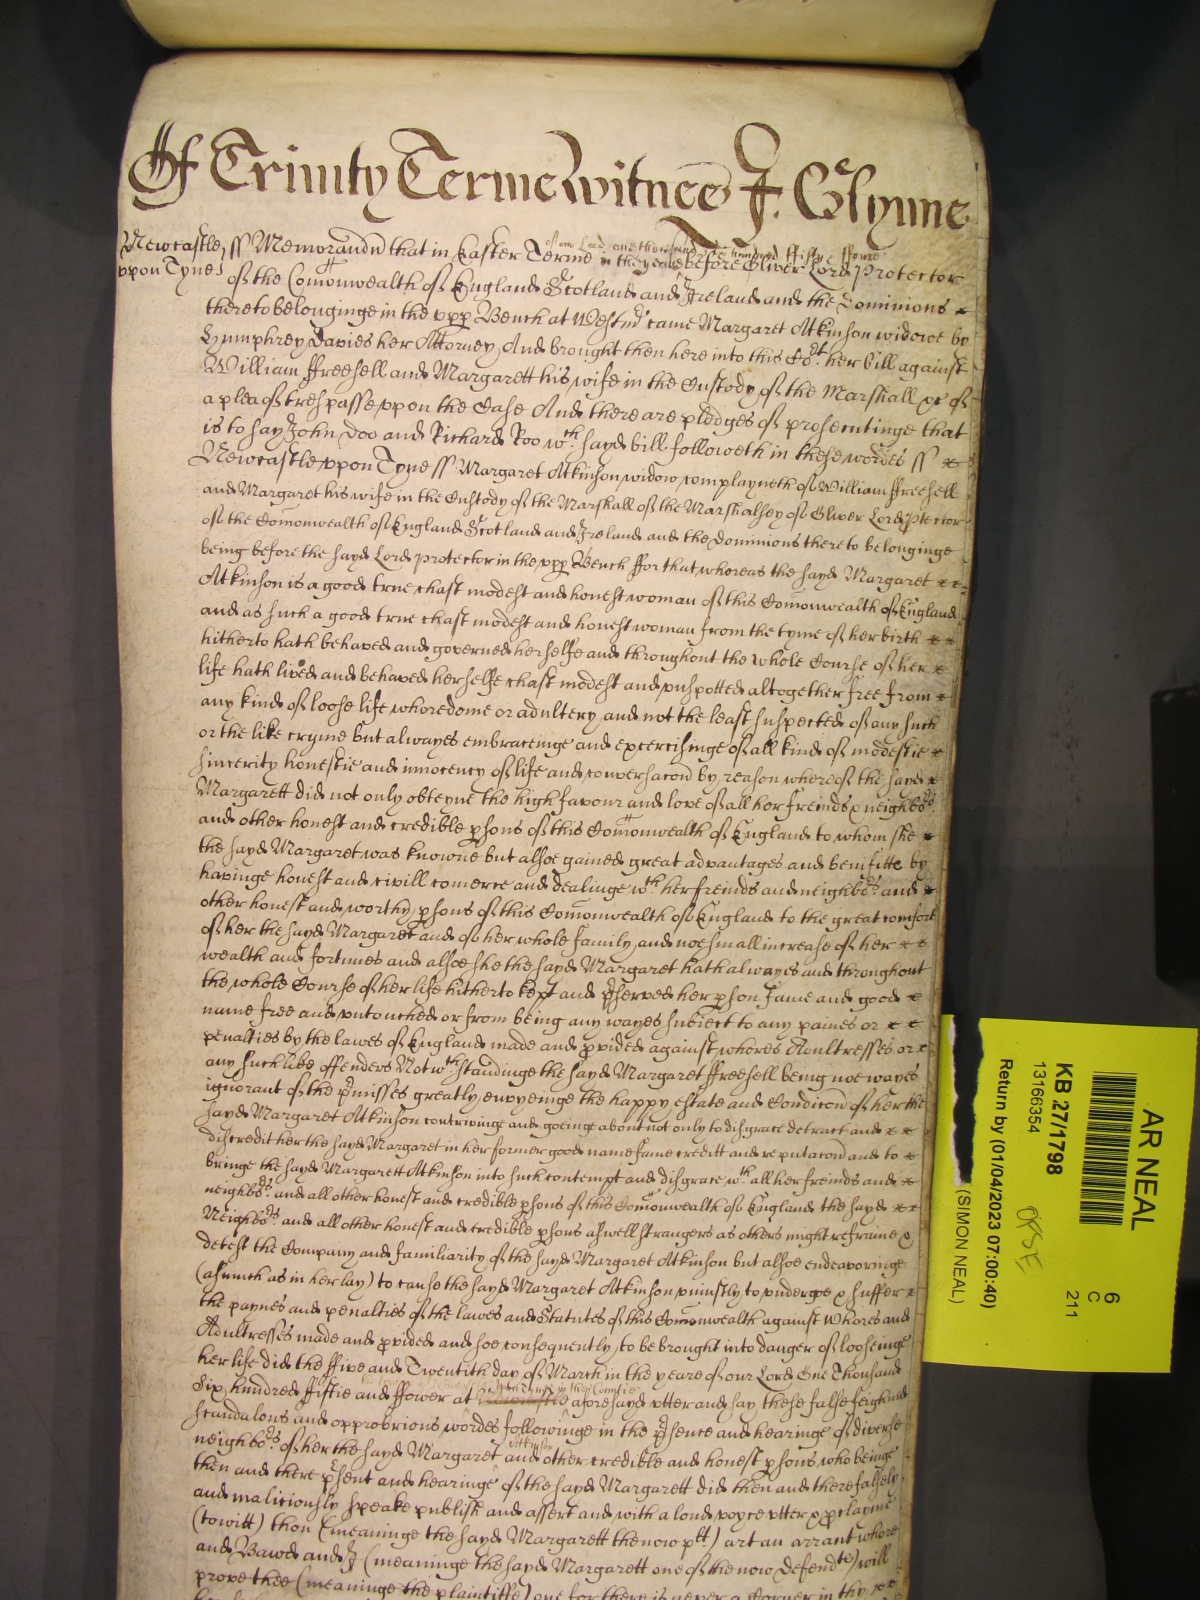 Of Trinity Terme Witnes J. Glynne
of our Lord one thousand six hundred fifty & ffowre
Newcastle ss Memorand that in Easter Terme in the yeare before Oliver Lord Protector
vpon Tyne of the Comonwealth of England Scotland and Ireland and the Dominions
thereto belonginge in the vpp Bench at Westmr came Margaret Atkinson widowe by
Humphrey Davies her Attorney And brought then here into this Cort her bill against
William ffreesell and Margarett his wife in the Custody of the Marshall &c of
a plea of trespasse vpon the Case And there are pledges of prosecutinge that
is to say John Doo and Richard Roo wch sayd bill followeth in these wordes ss
Newcastle vpon Tyne ss Margaret Atkinson widow complayneth of William ffreesell
and Margaret his wife in the Custody of the Marshall of the Marshalsey of Oliver Lord ptector
of the Comonwealth of England Scotland and Ireland and the Dominions thereto belonginge
being before the sayd Lord protector in the vpp Bench ffor that whereas the sayd Margaret
Atkinson is a good true chast modest and honest woman of this Comonwealth of England
and as such a good true chast modest and honest woman from the tyme of her birth
hitherto hath behaved and governed herselfe and throughout the whole Course of her
life hath lived and behaved herselfe chast modest and vnspotted altogether free from
any kind of loose life whoredome or adultery and not the least suspected of any such
or the like cryme but alwayes embraceinge and excercisinge of all kind of modestie
sincerity honestie and innocency of life and conversacon by reason whereof the sayd
Margarett did not only obteyne the high favour and love of all her freinds & neighbors
and other honest and credible psons of this Comonwealth of England to whom she
the sayd Margaret was knowne but alsoe gained great advantages and benifitte by
havinge honest and civill comerce and dealinge wth her freinds and neighbors and
other honest and worthy psons of this Comonwealth of England to the great comfort
of her the sayd Margaret and of her whole family and noe small increase of her
wealth and fortunes and alsoe she the sayd Margaret hath alwayes and throughout
the whole Course of her life hitherto kept and pserved her pson fame and good
name free and vntouched or from being any wayes subiect to any paines or
penalties by the lawes of England made and pvided against whores Adultresses or
any such like offenders Notwthstandinge the sayd Margaret ffreesell being noe wayes
ignorant of the pmisses greatly envyeinge the happy estate and Condicon of her the
sayd Margaret Atkinson contrivinge and goeinge about not only to disgrace detract and
discredit her the sayd Margaret in her former good name fame creditt and reputacon and to
bringe the sayd Margarett Atkinson into such contempt and disgrace wth all her freinds and
neighbors and all other honest and credible psons of this Comonwealth of England the sayd
Neighbors and all other honest and credible psons aswell strangers as others might refraine &
detest the Company and familiarity of the sayd Margaret Atkinson but alsoe endeavoringe
(asmuch as in her lay) to cause the sayd Margaret Atkinson viniustly to vndergoe & suffer
the paynes and penalties of the lawes and Statutes of this Comonwealth against Whores and
Adultresses made and pvided and soe consequently to be brought into danger of looseinge
her life did the ffive and Twentith day of March in the yeare of our Lord One Thousand
Six hundred ffiftie and ffower at aforesayd vtter and say these false feighned
scandalous and opprobrious wordes followinge in the psence and hearinge of diverse
neighbors of her the sayd Margaret Atkinson and other credible and honest psons who beinge
then and there psent and hearinge of the sayd Margarett did then and there falsely
and maliciously speake publish and assert and with a loud voyce vtter & pclayme
(to witt) thou (meaninge the sayd Margarett the now ptt) art an arrant whore
and Bawd and I (meaninge the sayd Margarett one of the now Defendts) will
prove thee (meaninge the plaintiffe) one for there is never a Corner in thy
AR NEAL
KB 27/1798
13166354
Return by (01/04/2023 07:00:40)
(SIMON NEAL)
6
C
211